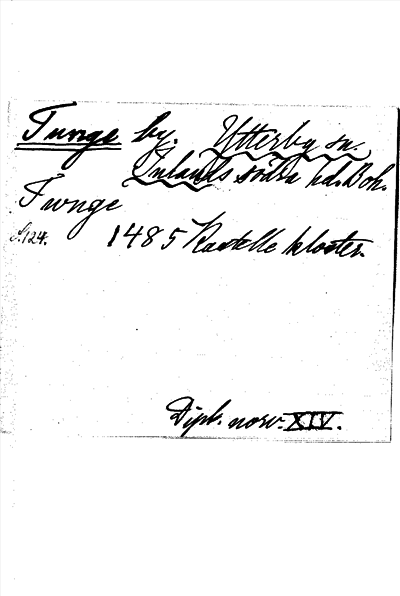 Tunge by. Ytterby sn.
Inlands södra hd. Boh.
Twnge
S. 124. 1485 Kastelle kloster.
Dipl. norv. XIV.